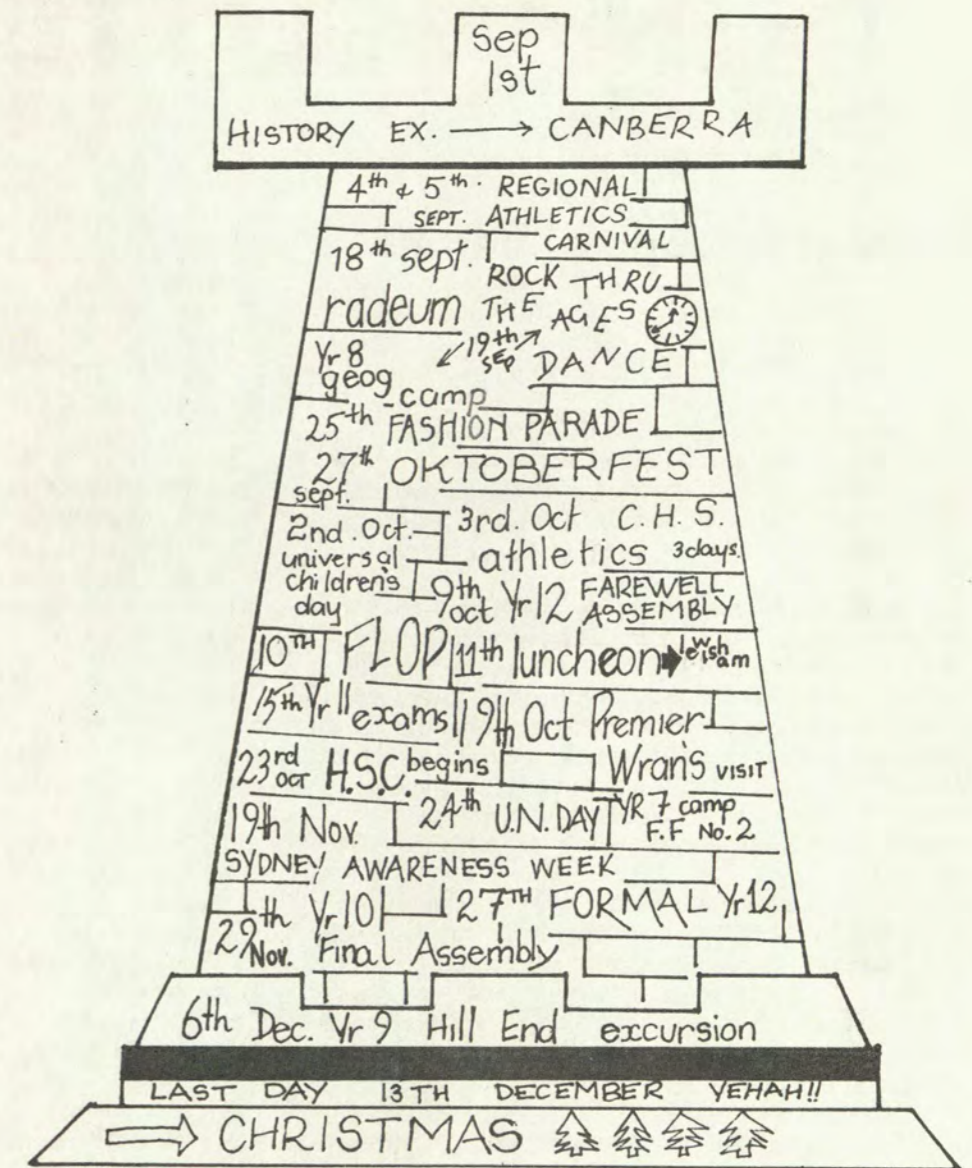 Sep
1st
HISTORY EX. → CANBERRA
4th & 5th. REGIONAL
SEPT. ATHLETICS
CARNIVAL
18th sept.
radeum
ROCK THRU
THE AGES
19th
SEP
DANCE
Yr 8
geog
camp
25th FASHION PARADE
27th OKTOBERFEST
sept.
2nd. Oct.
universal
children's
day
3rd. Oct C.H.S.
athletics 3days.
9th
oct Yr12 FAREWELL
ASSEMBLY
10TH FLOP
11th luncheon → lewisham
15th Yr 11 exams
19th Oct Premier
Wran's VISIT
23rd
OCT H.S.C. begins
24th U.N. DAY
YR 7 camp
F.F No. 2
19th Nov.
SYDNEY AWARENESS WEEK
27TH FORMAL Yr12
29th Yr 10
Nov. Final Assembly
6th Dec. Yr 9 Hill End excursion
LAST DAY 13TH DECEMBER YEHAH!!
CHRISTMAS